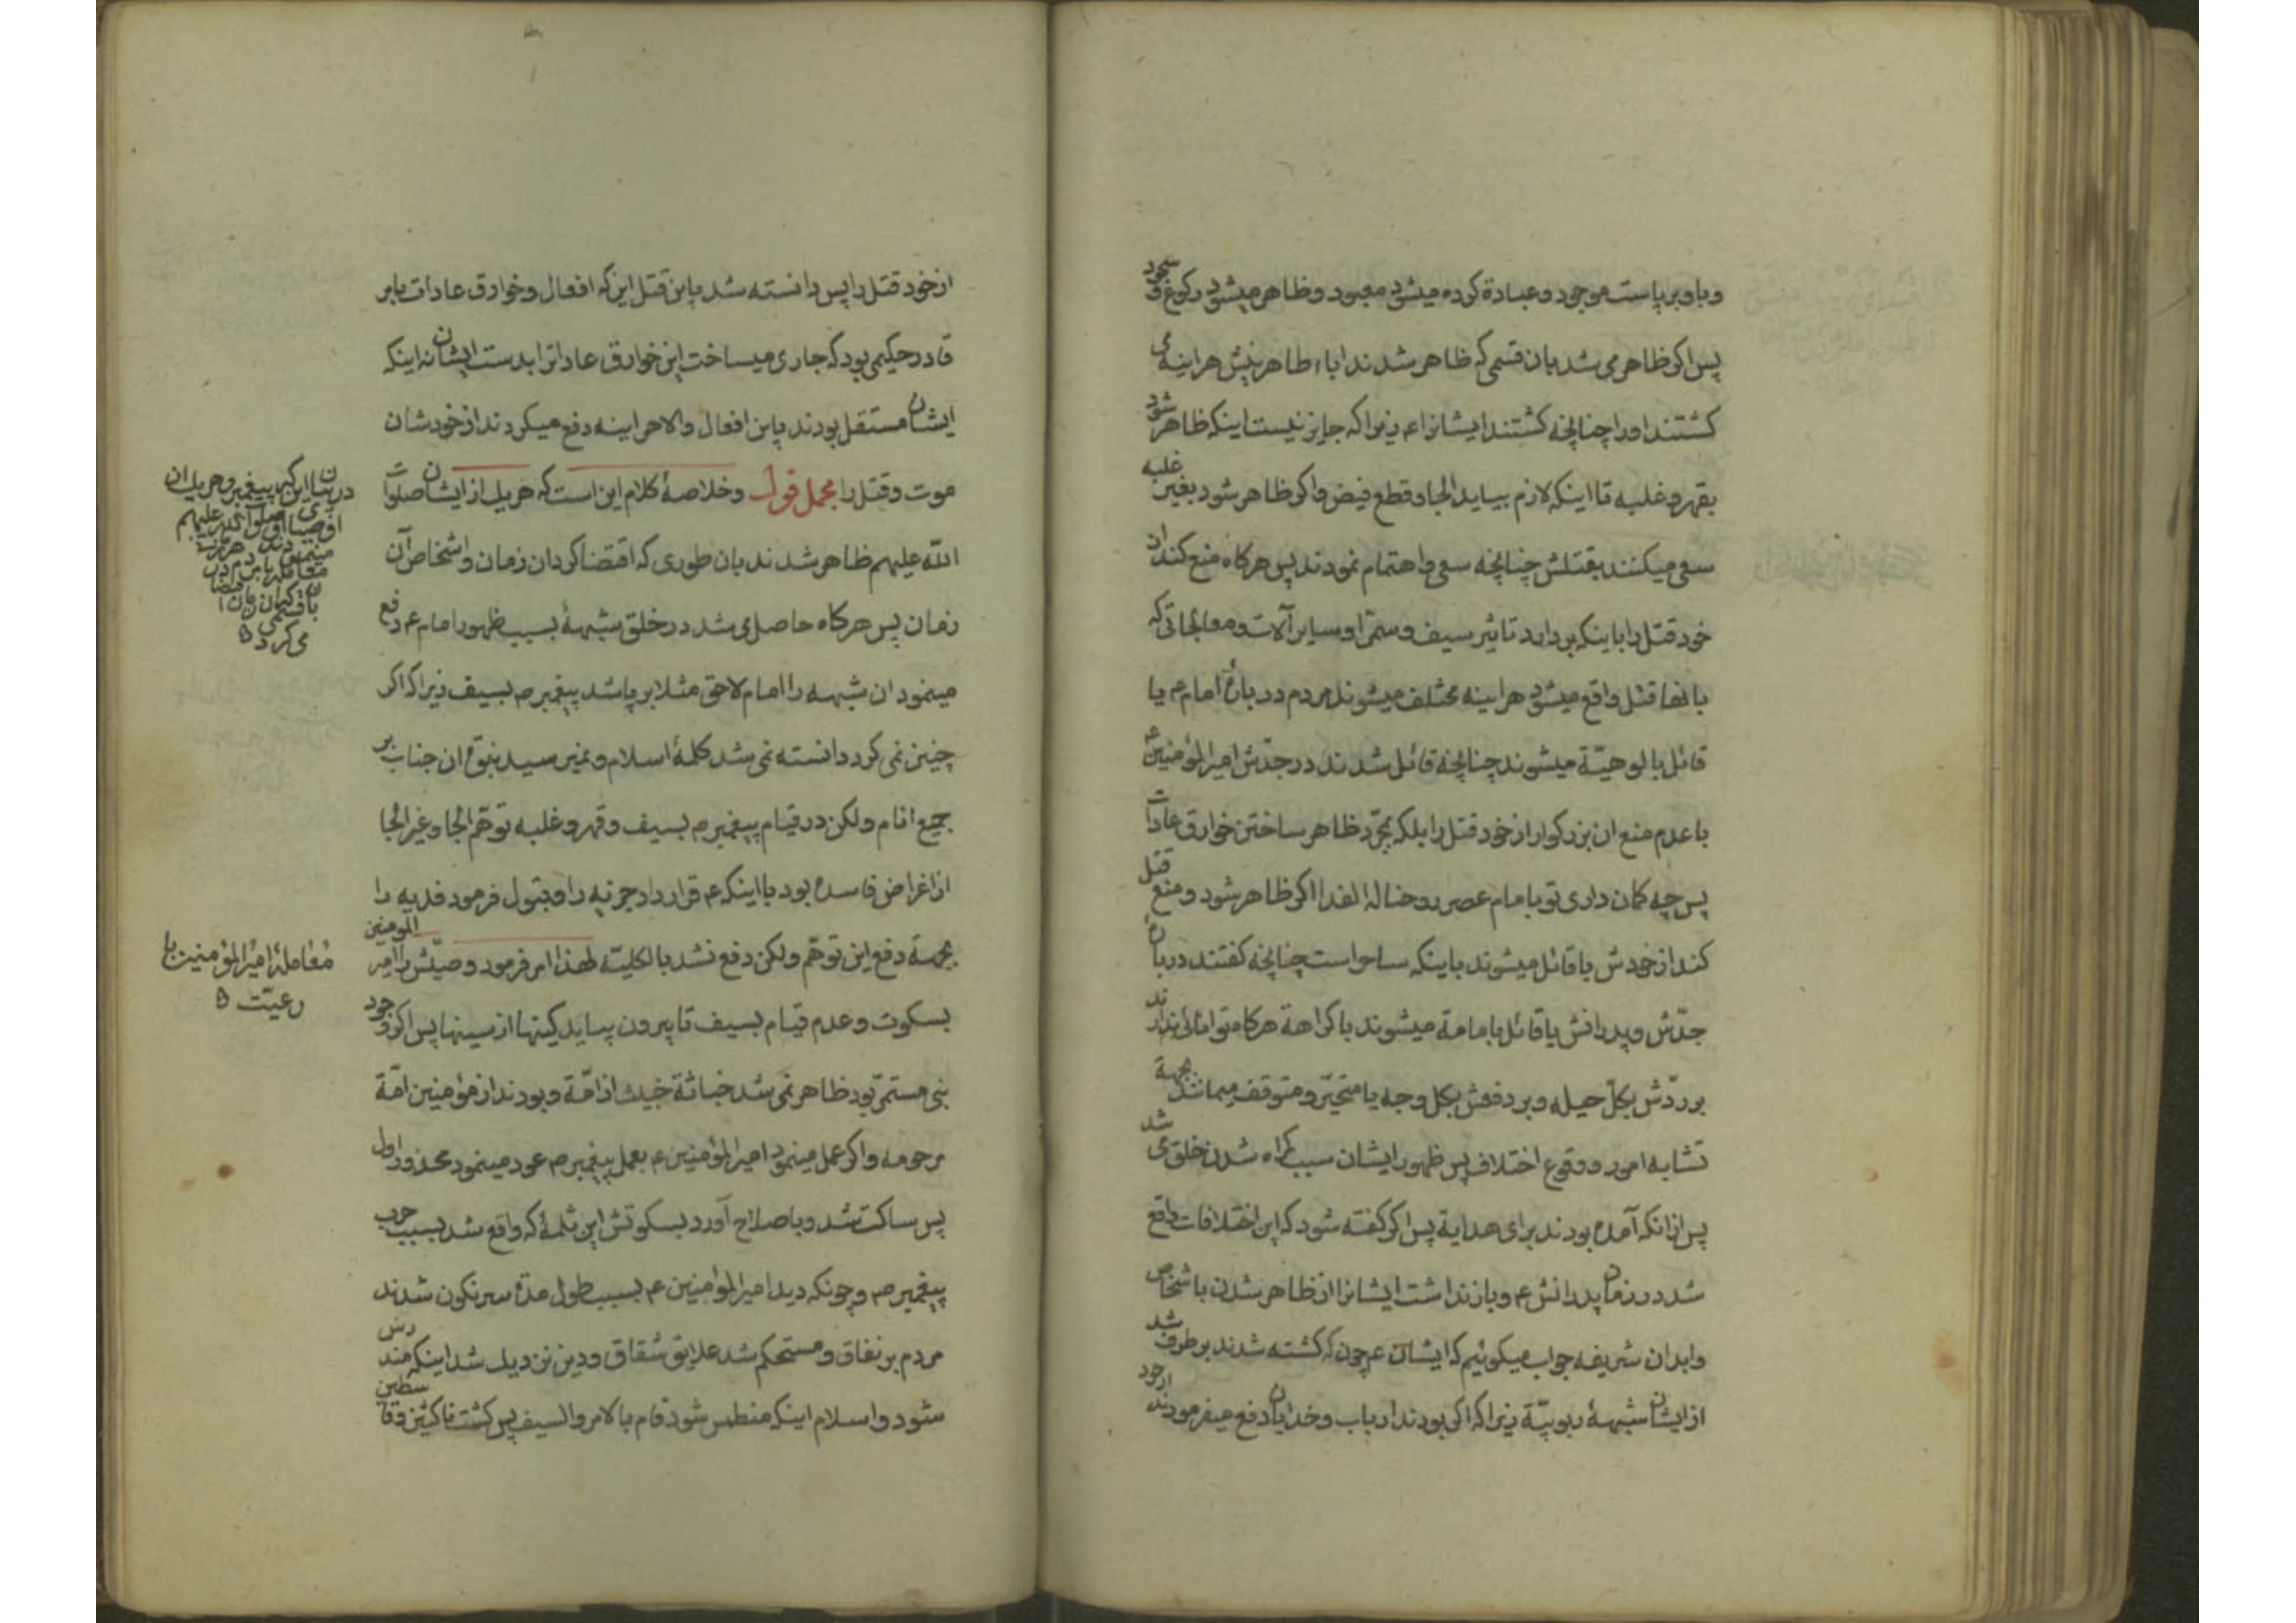 و باو برپاست موجود و عبادة کرده میشود معبود و ظاهر میشود رکوع و سجود
پس اکر ظاهر می شد بان قسمی که ظاهر شدند اباء طاهرینش هراینه می
کشتند او را چنانچه کشتند ایشانرا ع زیرا که جایز نیست اینکه ظاهر شود
بقهر و غلبه تا اینکه لازم بیاید الجا و قطع فیض و اکر ظاهر شود بغیر غلبه
سعی میکنند بقتلش چنانچه سعی و اهتمام نمودند پس هرکاه منع کند از
خود قتل را باینکه بردارد تاثیر سیف و سمّ را و سایر آلات و معالجاتی که
بانها قتل واقع میشود هراینه مختلف میشوند مردم در بارۀ امام ع یا
قائل بالوهیّة میشوند چنانچه قائل شدند در جدّش امیر المؤمنین ع
با عدم منع ان بزرکوار از خود قتل را بلکه بمجرّد ظاهر ساختن خوارق عادات
پس چه کمان داری تو بامام عصر روحنا له الفدا اکر ظاهر شود و منع قتل
کند از خودش یا قائل میشوند باینکه ساحر است چنانچه کفتند در بارۀ
جدّش و پدرانش یا قائل بامامة میشوند با کراهة هرکاه توانائی ندارند
بر ردّش بکلّ حیله و بر دفعش بکل وجه یا متحیّر و متوقف میمانند بجهة
تشابه امور و وقوع اختلاف پس ظهور ایشان سبب کمراه شدن خلق می شد
پس از انکه آمده بودند برای هدایة پس اکر کفته شود که این اختلافات واقع
شد در زمان پدرانش ع و باز نداشت ایشانرا از ظاهر شدن باشخاص
و ابدان شریفه جواب میکوئیم که ایشان ع چون که کشته شدند بر طرف شد
از ایشان شبهۀ ربوبیّة زیرا که اکر بودند ارباب و خدایان دفع میفرمودند از خود
از خود قتل را پس دانسته شد باین قتل این که افعال و خوارق عادات بابر
قادر حکیمی بود که جاری میساخت این خوارق عادات را بدست ایشان نه اینکه
ایشان مستقل بودند باین افعال و الا هراینه دفع میکردند از خودشان
موت و قتل را مجمل قول و خلاصۀ کلام این است که هریک از ایشان صلوات
اللّه علیهم ظاهر شدند بان طوری که اقتضا کرد ان زمان و اشخاص آن
زمان پس هرکاه حاصل می شد در خلق شبهۀ بسبب ظهور امام ع رفع
مینمود ان شبهه را امام لاحق مثلا برپا شد پیغمبر ص بسیف زیرا که اکر
چنین نمی کرد دانسته نمی شد کلمۀ اسلام و نمیرسید نبوّة ان جناب بر
جمیع انام و لکن در قیام پیغمبر ص بسیف و قهر و غلبه توهّم الجا و غیر الجا
از اغراض فاسده بود با اینکه ع قرار داد جزیه را و قبول فرمود فدیه را
بجهة دفع این توهّم و لکن دفع نشد بالکلیّه لهذا امر فرمود وصیّش را امیر المومنین
بسکوت و عدم قیام بسیف تا بیرون بیاید کینها از سینها پس اکر وجود
نبی مستمرّ بود ظاهر نمی شد خباثة خبیث از امّة و بودند از مؤمنین امّة
مرحومه و اکر عمل مینمود امیر المؤمنین ع بعمل پیغمبر ص عود مینمود محذور اول
پس ساکت شد و باصلاح آورد بسکوتش این ثلمۀ که واقع شد بسبب حرب
پیغمبر ص و چونکه دید امیر المؤمنین ع بسبب طول مدّة سرنکون شدند
مردم بر نفاق و مستحکم شد علایق شقاق و دین نزدیک شد اینکه مندرس
شود و اسلام اینکه منطمس شود قام بالامر و السیف پس کشت ناکثین و قاسطین
در بیان این که پیغمبر و هریک از
اوصیای او صلوات اللّه علیهم
معامله با مردم در
می کرد
معاملۀ امیر المؤمنین با
رعیّت